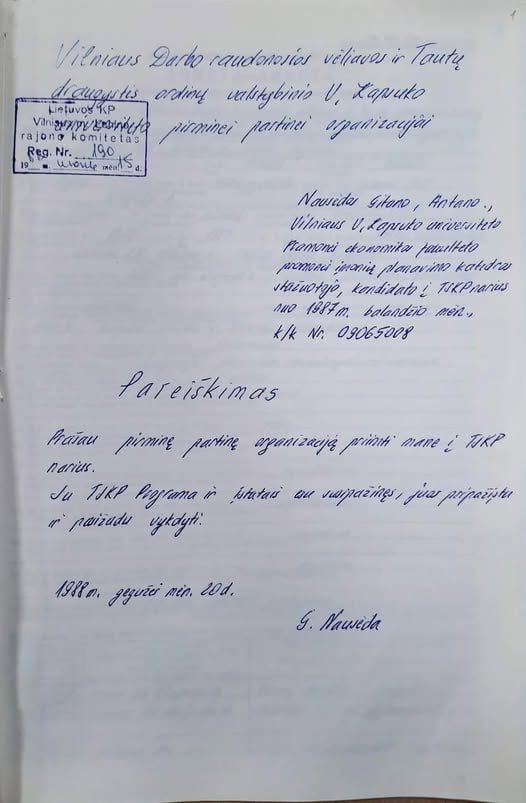 1
Vilniaus Darbo raudonosios vėliavos ir Tautų
draugystės ordinų valstybinio V. Kapsuko
universiteto pirminei partinei organizacijai
Lietuvos KP
Vilniaus m.
rajono komitetas
Reg. Nr. 190
19 mėn. 15 d.
Nausėdos Gitano, Antano.,
Vilniaus V. Kapsuko universiteto
Pramonės ekonomikos fakulteto
pramonės įmonių planavimo katedros
stažuotojo, kandidato į TSKP narius
nuo 1987 m. balandžio mėn.,
k/k Nr. 09065008
Pareiškimas
Prašau pirminę partinę organizaciją priimti mane į TSKP
narius.
Su TSKP Programa ir įstatais esu susipažinęs, juos pripažįstu
ir pasižadu vykdyti.
1988 m. gegužės mėn. 20 d.
G. Nausėda